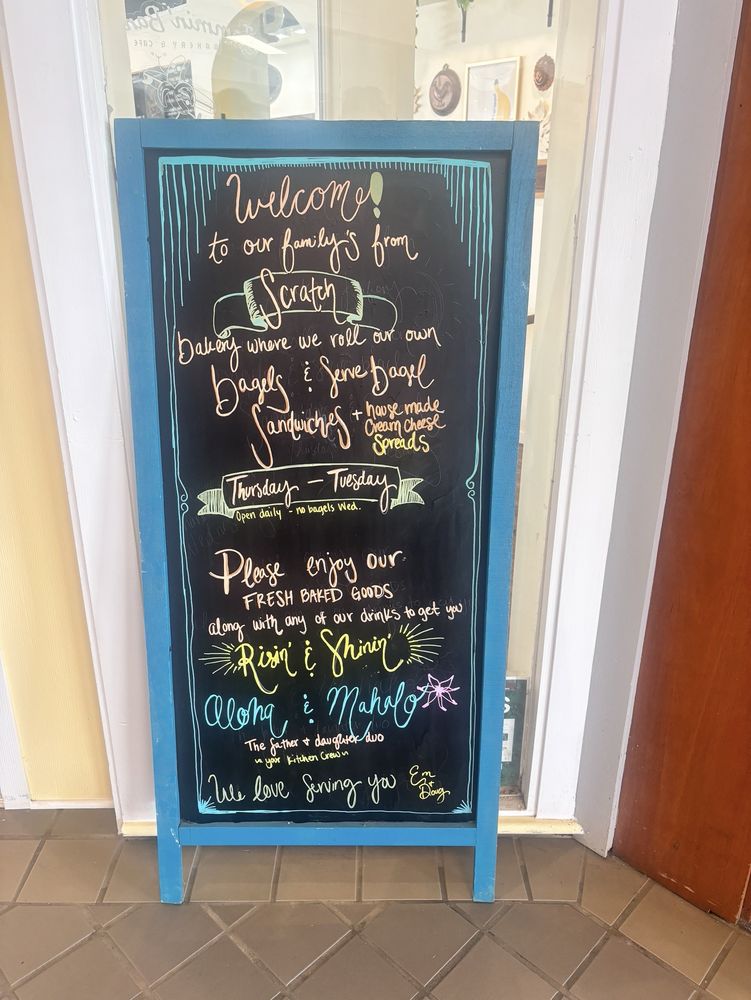 Welcome!
to our family's from
Scratch
bakery where we roll our own
bagels & serve bagel
Sandwiches + house made
Cream Cheese
Spreads
Thursday — Tuesday
Open daily - no bagels Wed.
Please enjoy our
FRESH BAKED GOODS
along with any of our drinks to get you
Risin' & Shinin'
Aloha & Mahalo
The father + daughter duo
~ your Kitchen Crew ~
We love Serving you
Em + Doug